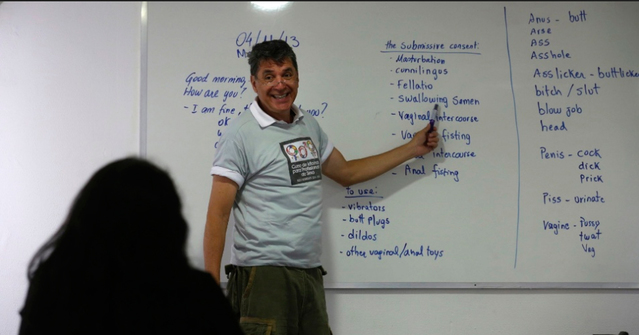 04/11/13
Good morning,
How are you?
- I am fine,
the submissive consent:
- Masturbation
- cunnilingus
- Fellatio
- swallowing Semen
- Vaginal intercourse
- fisting
intercourse
- Anal fisting
To use:
- vibrators
- butt plugs
- dildos
- other vaginal/anal toys
Anus - butt
Arse
Ass
Asshole
Asslicker - buttlicker
bitch / slut
blow job
head
Penis - cock
dick
Prick
Piss - urinate
Vagine - Pussy
twat
Vag